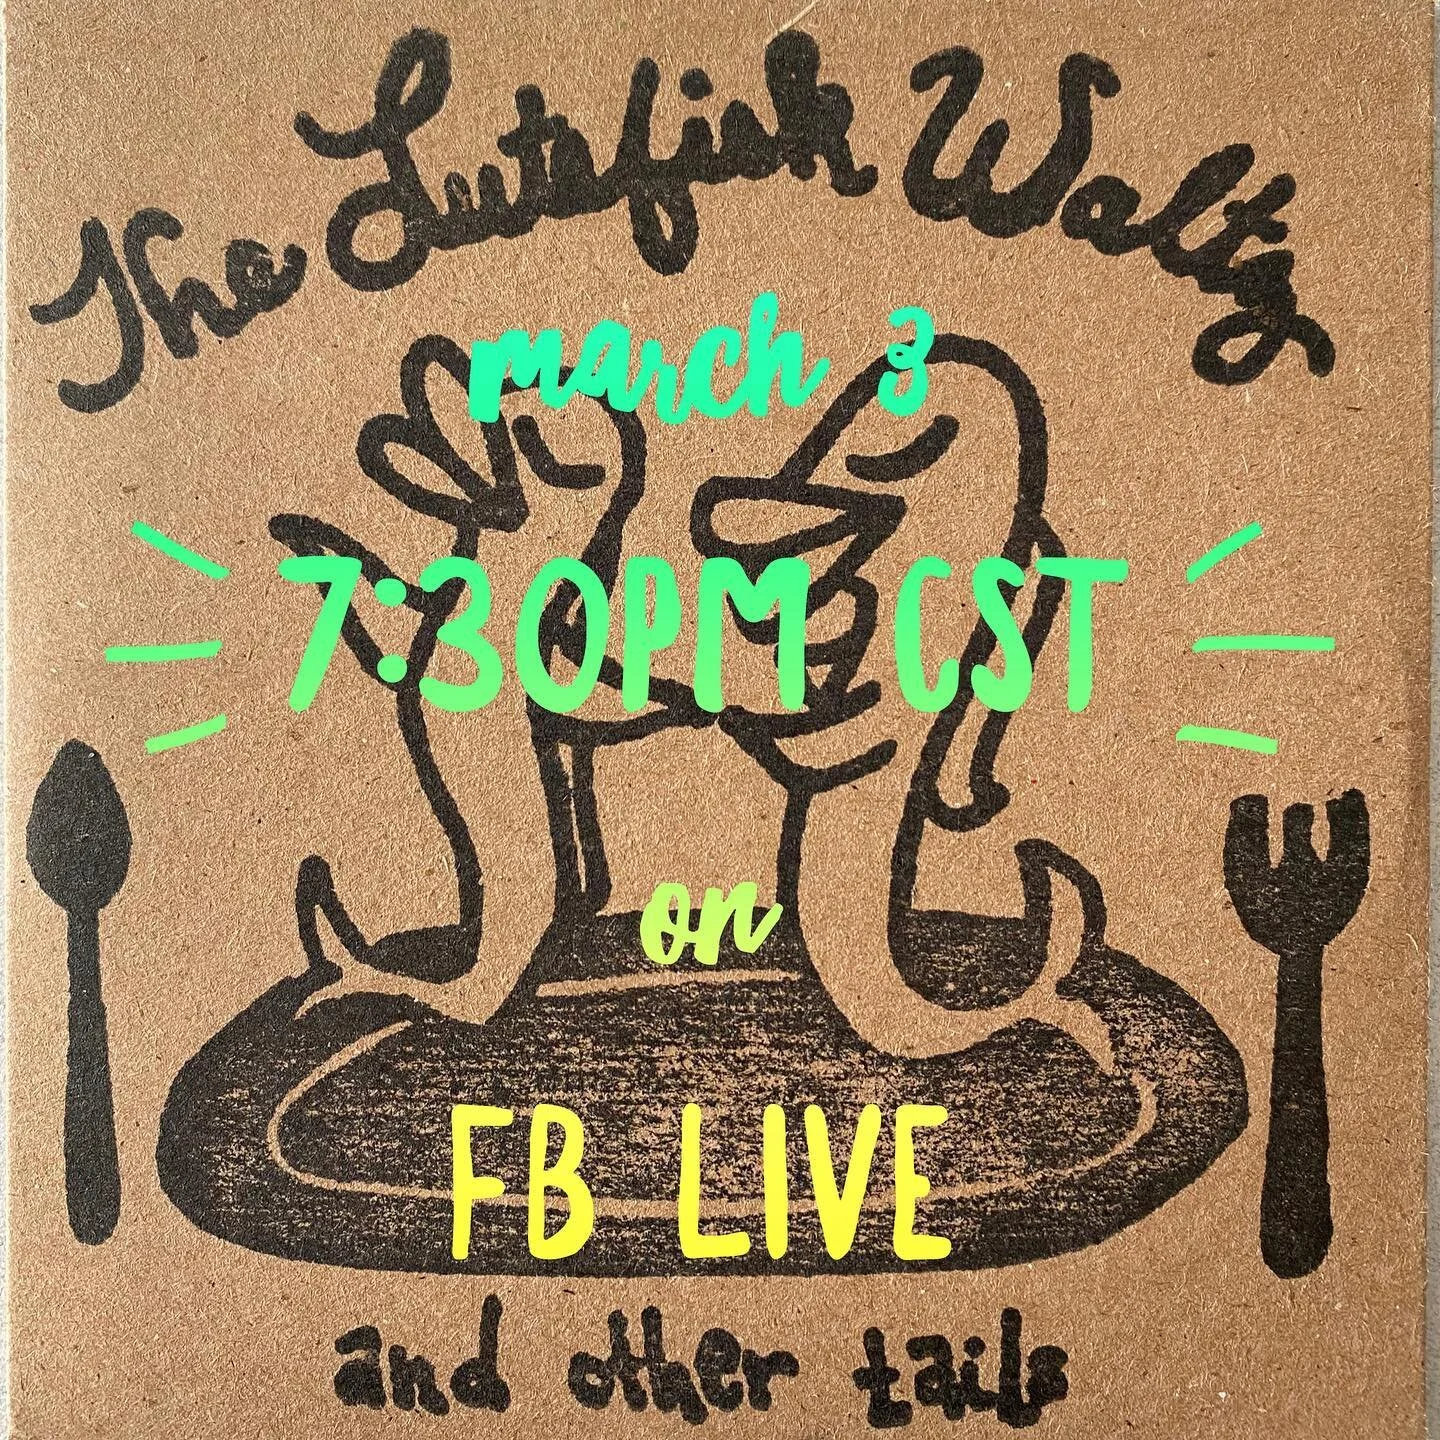 The Lutefisk Waltz
march 3
7:30PM CST
on
FB LIVE
and other tails